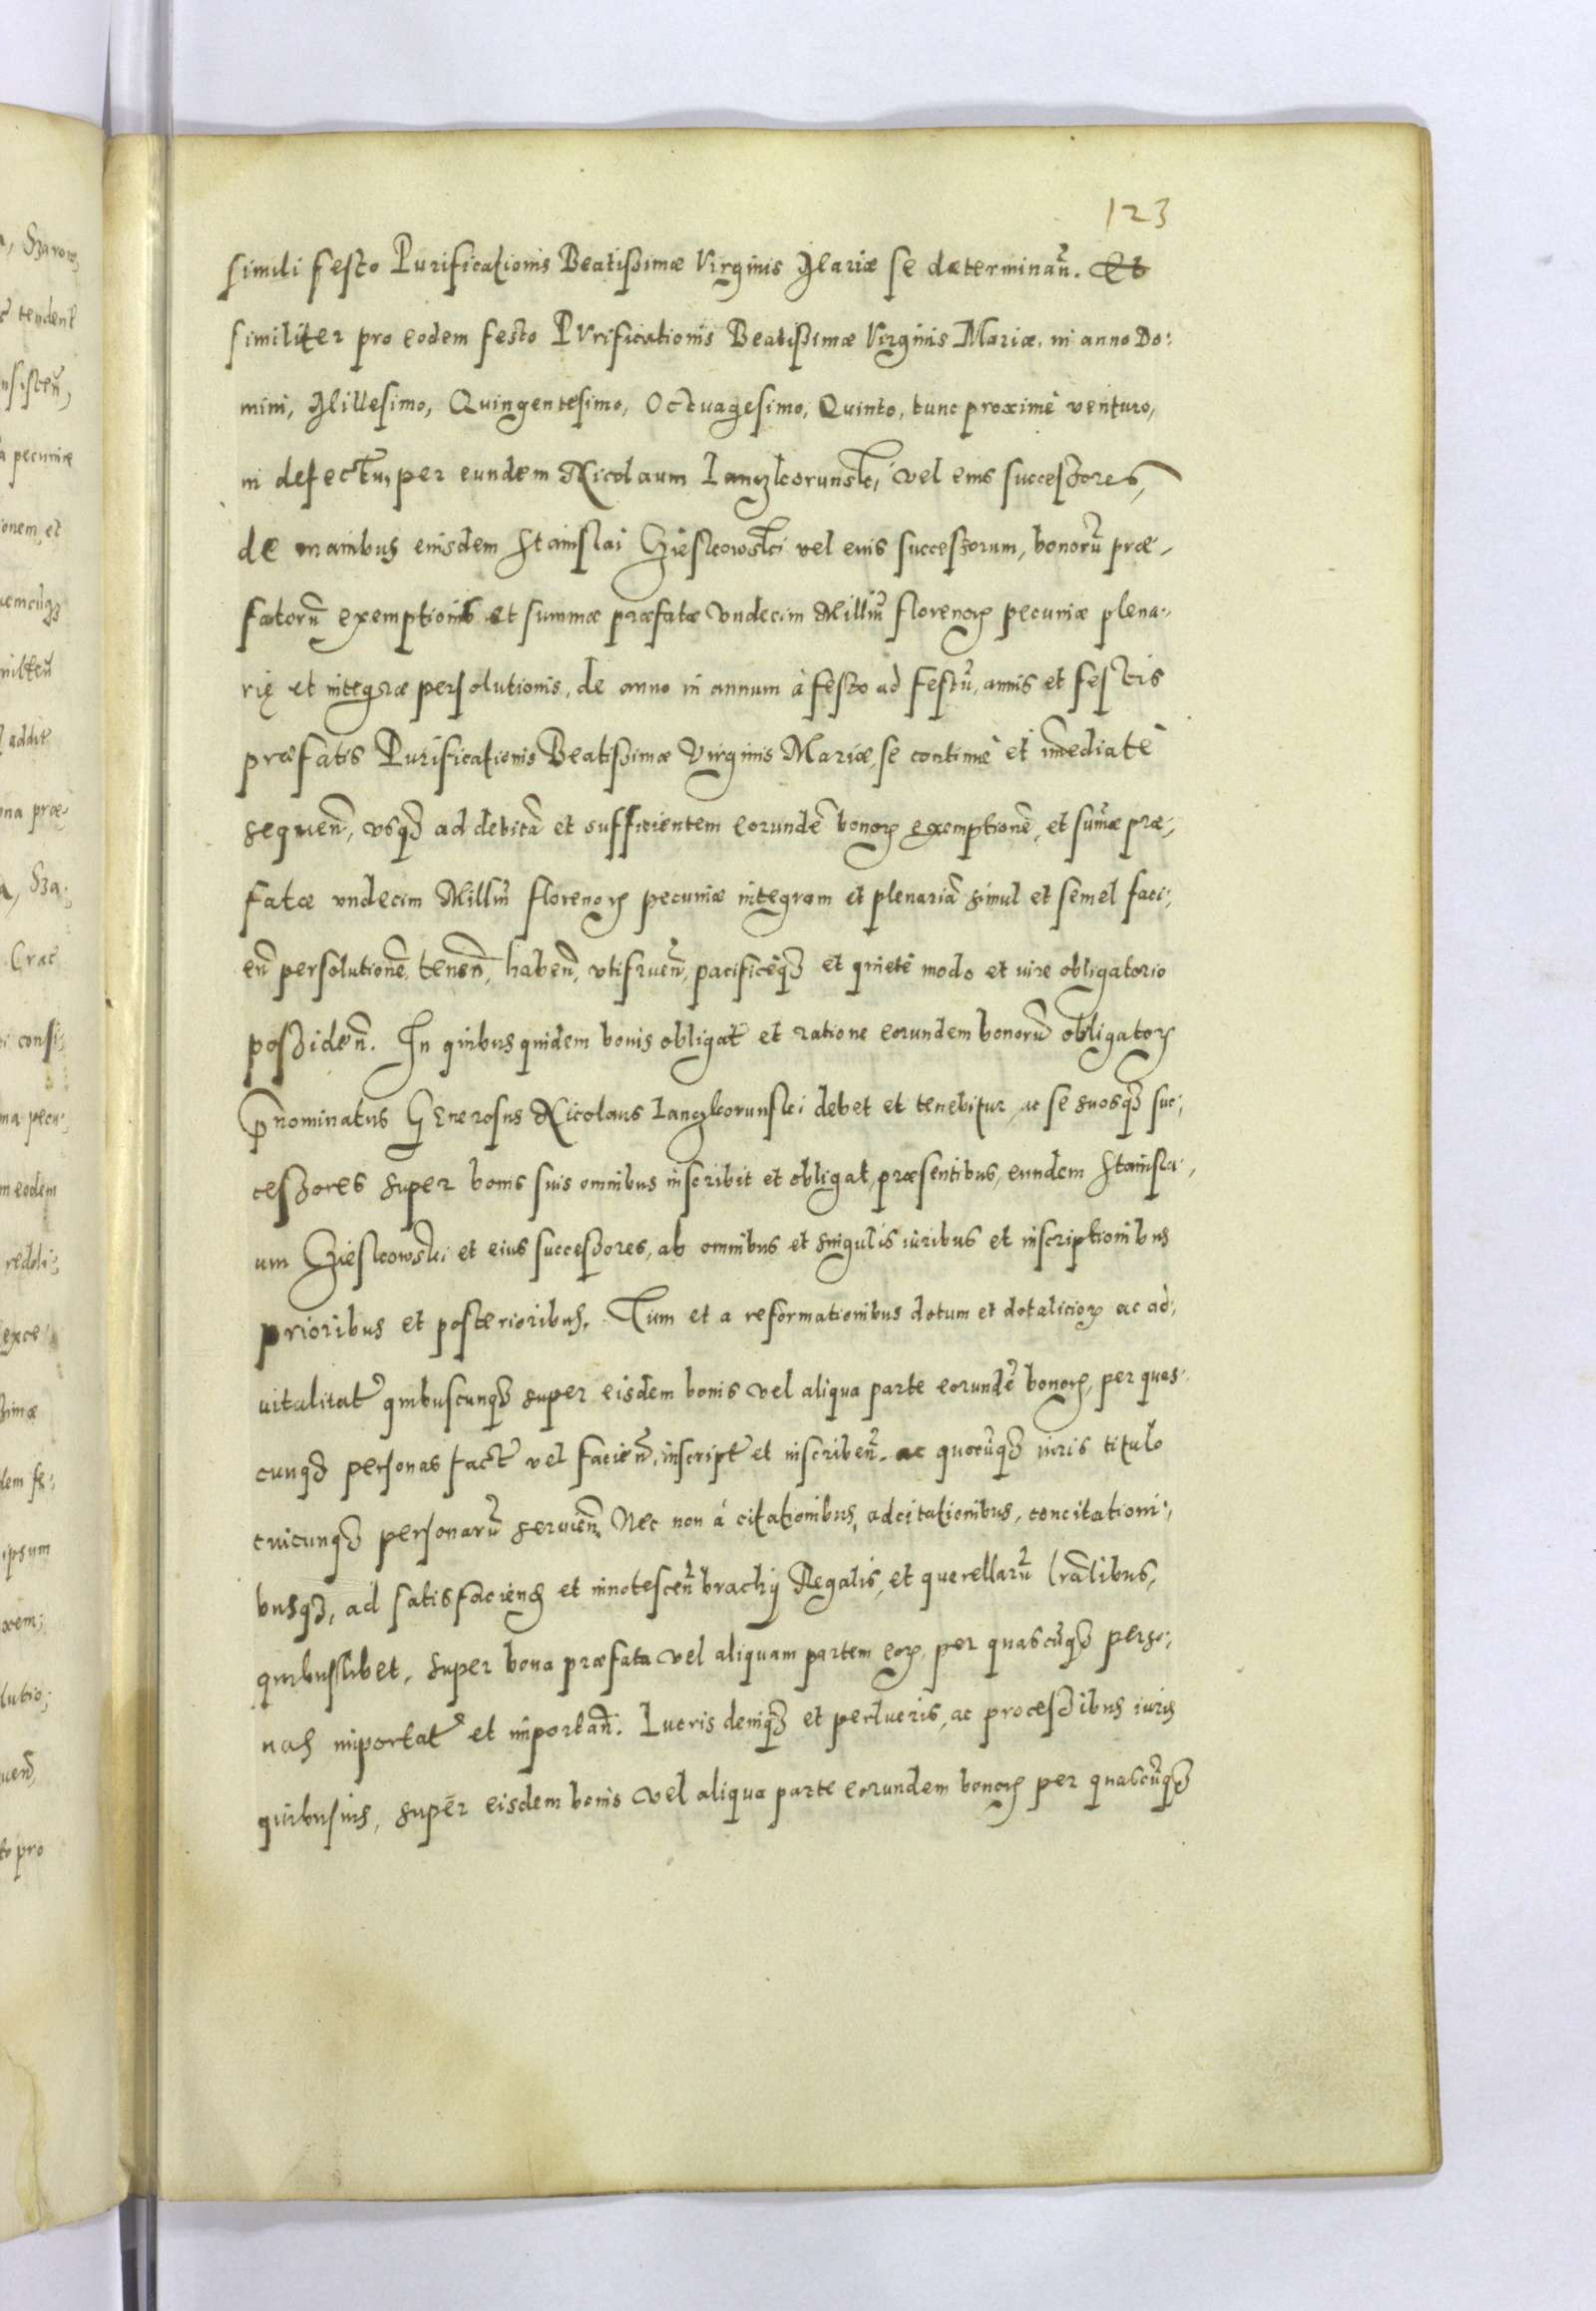 123
simili festo Purificationis Beatissimæ Virginis Mariæ se dæterminañ. Et
similiter pro eodem festo PUrificationis Beatissimæ Virginis Mariæ, in anno Do:
mini, Millesimo, Quingentesimo, Octuagesimo, Quinto, tunc proximè venturo,
in defectũ, per eundem Nicolaum Ianczkorunski, vel eius successores,
de manibus eiusdem Stanislai Czieskowski vel eius successorum, bonorũ præ,
fatorũ exemptionis et summæ præfatæ Vndecim Milliũ florenoꝝ pecuniæ plena,
rię et integræ persolutionis, de anno in annum à festo ad festũ, annis et festis
præfatis Purificationis Beatissimæ Virginis Mariæ, se continuè et im̃ediatè
sequeñ, vsqꝫ ad debitã et sufficientem eorundẽ bonoꝝ exemptionẽ, et sum̃æ præ,
fatæ vndecim Milliũ florenoꝝ pecuniæ integram et plenariã simul et semel faci,
eñ persolutionẽ, teneñ, habeñ, vtifrueñ, pacificeqꝫ et quietè modo et iure obligatorio
possideñ. In quibus quidem bonis obligat̃ et ratione eorundem bonorũ obligatoꝝ
p̃nominatus Generosus Nicolaus Ianczkorunski debet et tenebitur, ac se suosqꝫ suc,
cessores super bonis suis omnibus inscribit et obligat, præsentibus, eundem Stanisla,
um Czieskowski et eius successores, ab omnibus et singulis iuribus et inscriptionibus
prioribus et posterioribus. Tum et a reformationibus dotum et dotalicioꝝ ac ad,
uitalitat̃ quibuscunqꝫ super eisdem bonis vel aliqua parte eorundẽ bonoꝝ, per quas,
cunqꝫ personas fact̃ vel facieñ, inscript̃ et inscribeñ. ac quocũqꝫ iuris titulo
cuicunqꝫ personarũ seruieñ. Nec non à citationibus, adcitationibus, concitationi,
busqꝫ, ad satisfacienꝫ et innotesceñ brachij Regalis, et querellarũ lr̃alibus,
quibuslibet, super bona præfata vel aliquam partem eoꝝ, per quascũqꝫ perso,
nas importat̃ et importañ. Lucris deniqꝫ et perlucris, ac processibus iuris
quibusuis, super eisdem bonis vel aliqua parte eorundem bonoꝝ per quascũqꝫ